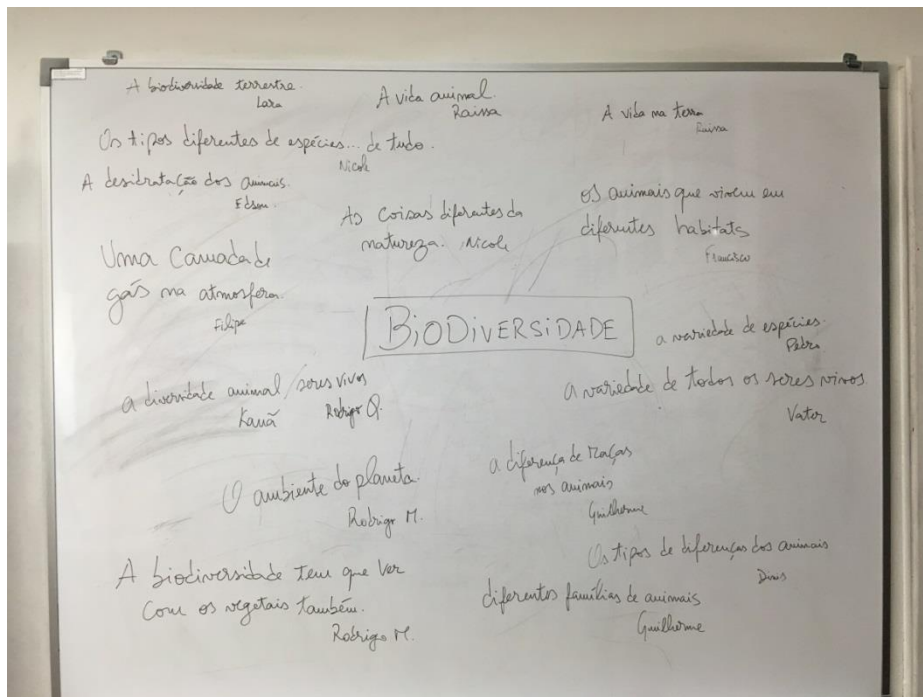 A biodiversidade terrestre.
Lara
A vida animal.
Raissa
A vida na terra
Raissa
Os tipos diferentes de espécies... de tudo.
Nicole
A desidratação dos animais.
Edson
As coisas diferentes da
natureza. Nicole
Os animais que vivem em
diferentes habitats
Francisco
Uma Camada de
gás na atmosfera.
Filipe
BIODIVERSIDADE
a variedade de espécies.
Pedro
a diversidade animal/seres vivos
Kauã Rodrigo Q.
a variedade de todos os seres vivos.
O ambiente do planeta.
Rodrigo M.
a diferença de raças
nos animais
Guilherme
A biodiversidade tem que ver
com os vegetais também.
Rodrigo M.
Os tipos de diferenças dos animais
Dinis
diferentes famílias de animais
Guilherme